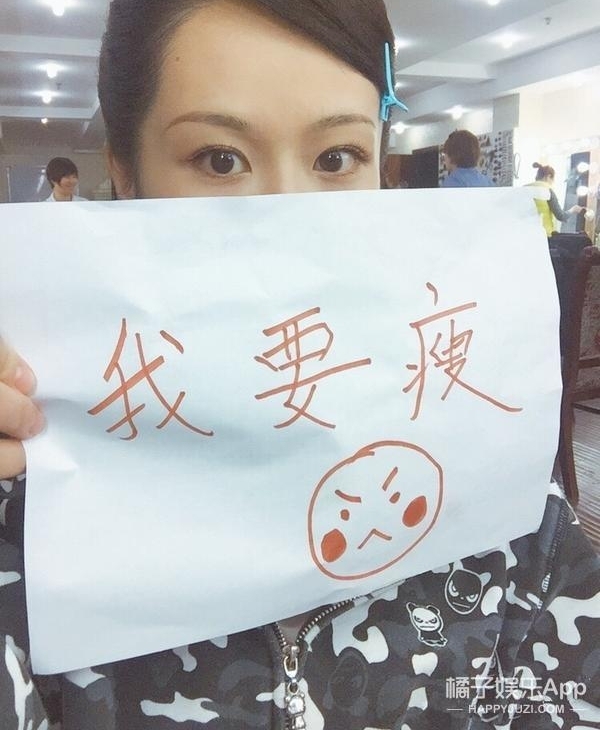 我要瘦
橘子娱乐App
HAPPYJUZI.COM